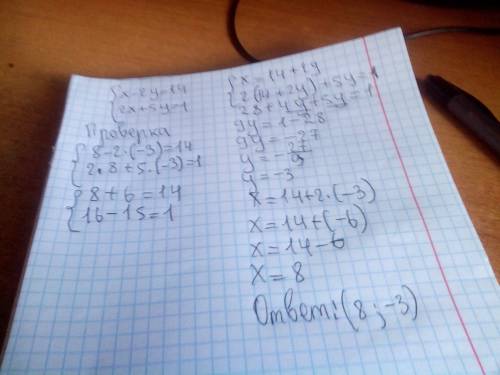 {x-2y=14
{2x+5y=1
Проверка
{8-2·(-3)=14
{2·8+5·(-3)=1
{8+6=14
{16-15=1
{x=14+2y
{2(14+2y)+5y=1
28+4y+5y=1
9y=1-28
9y=-27
y=-27/9
y=-3
x=14+2·(-3)
x=14+(-6)
x=14-6
x=8
Ответ:(8;-3)